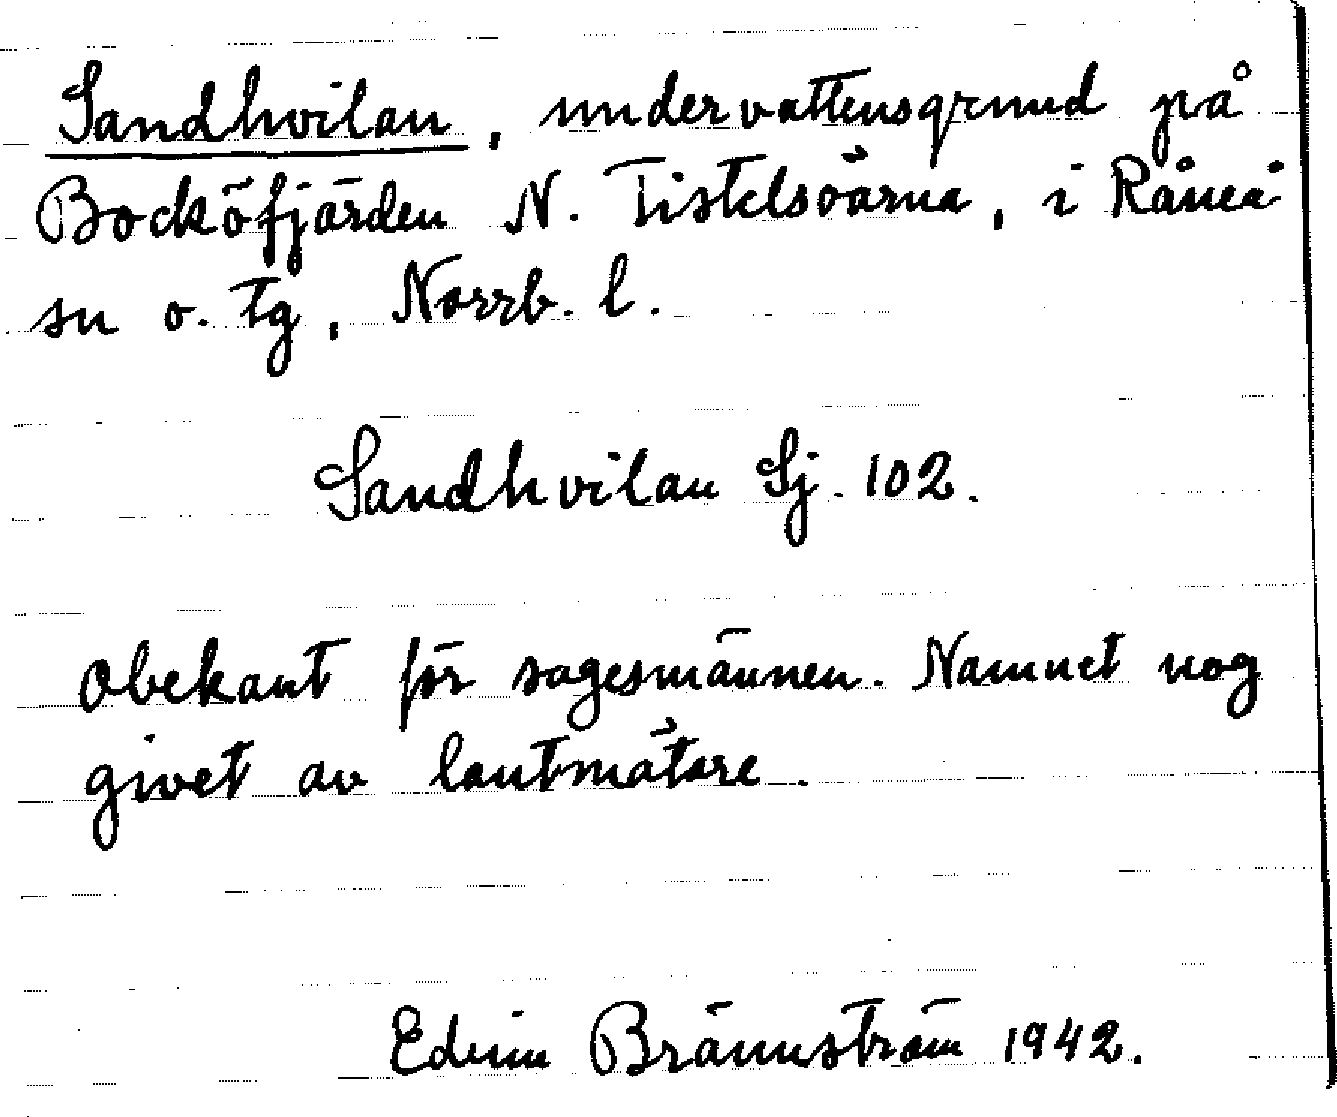 Sandhvilan, undervattensgrund på
Bocköfjärden N. Tistelsöarna, i Råneå
sn o. tg, Norrb. l.
Sandhvilan Sj. 102.
Obekant för sagesmännen. Namnet nog
givet av lantmätare.
Edvin Brännström 1942.